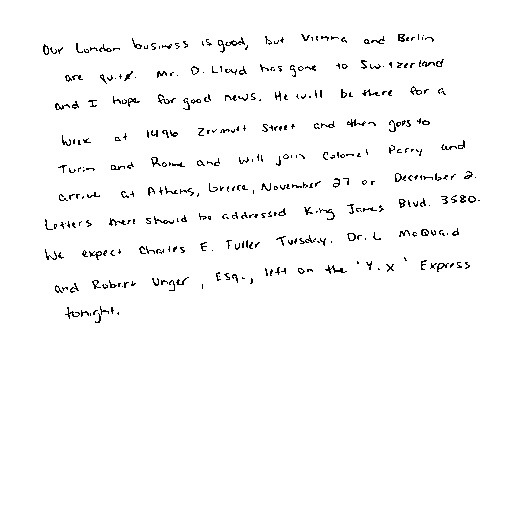 Our London business is good, but Vienna and Berlin
are quite. Mr. D. Lloyd has gone to Switzerland
and I hope for good news. He will be there for a
week at 1496 Zermott Street and then goes to
Turin and Rome and will join Colonel Perry and
arrive at Athens, Greece, November 27 or December 2.
Letters there should be addressed King James Blvd. 3580.
We expect Charles E. Fuller Tuesday. Dr. L McQuaid
and Robert Unger, Esq., left on the 'Y.X' Express
tonight.